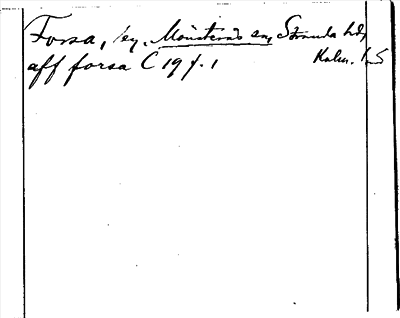 Forsa, by, Mönsterås sn, Stranda hd,
Kalm. l.
aff forsa C 19 f. 1